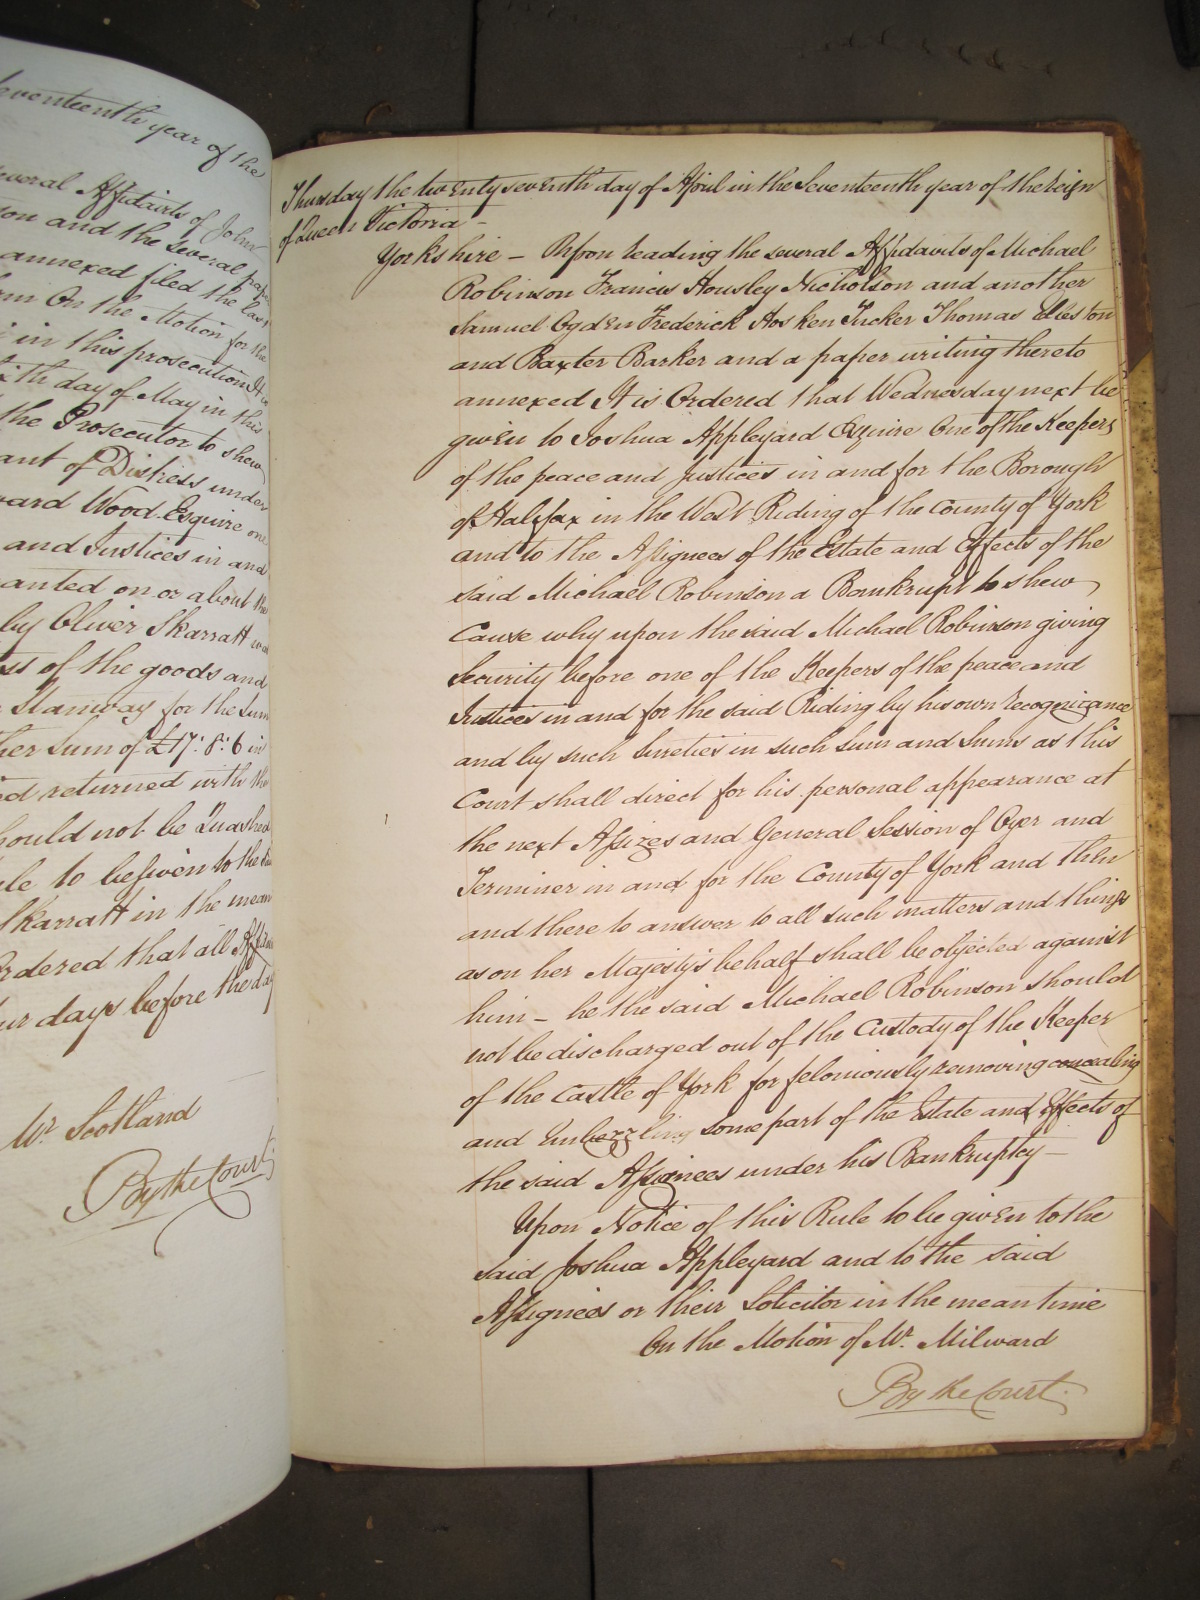 eventeenth year of the
everal Affidavits of John
son and the several paper
annexed filed the last
On the Motion for the
in this prosecution It is
th day of May in this
the Prosecutor to shew
ant of Distress under
ward Wood Esquire one
and Justices in and
anted on or about the
by Oliver Skarratt
ss of the goods and
Stanway for the Sum
her Sum of £17:8:6 in
ed returned with the
hould not be Quashed
le to be given to the
Skarratt in the mean
Ordered that all
ur days before the day
Mr Scotland
By the Court
Thursday the twenty seventh day of April in the Seventeenth year of the reign
of Queen Victoria
Yorkshire - Upon reading the several Affidavits of Michael
Robinson Francis Housley Nicholson and another
Samuel Ogden Frederick Hosken Tucker Thomas Elleston
and Baxter Barker and a paper writing thereto
annexed It is Ordered that Wednesday next be
given to Joshua Appleyard Esquire One of the Keepers
of the peace and Justices in and for the Borough
of Halifax in the West Riding of the County of York
and to the Assignees of the Estate and Effects of the
said Michael Robinson a Bankrupt to shew
Cause why upon the said Michael Robinson giving
Security before one of the Keepers of the peace and
Justices in and for the said Riding by his own recognizance
and by such Sureties in such Sum and Sums as this
Court shall direct for his personal appearance at
the next Assizes and General Session of Oyer and
Terminer in and for the County of York and then
and there to answer to all such matters and things
as on her Majesty's behalf shall be objected against
him - he the said Michael Robinson should
not be discharged out of the Custody of the Keeper
of the Castle of York for feloniously removing concealing
and Embezzling some part of the Estate and Effects of
the said Assignees under his Bankruptcy -
Upon Notice of this Rule to be given to the
said Joshua Appleyard and to the said
Assignees or their Solicitor in the mean time
On the Motion of Mr. Milward
By the Court.